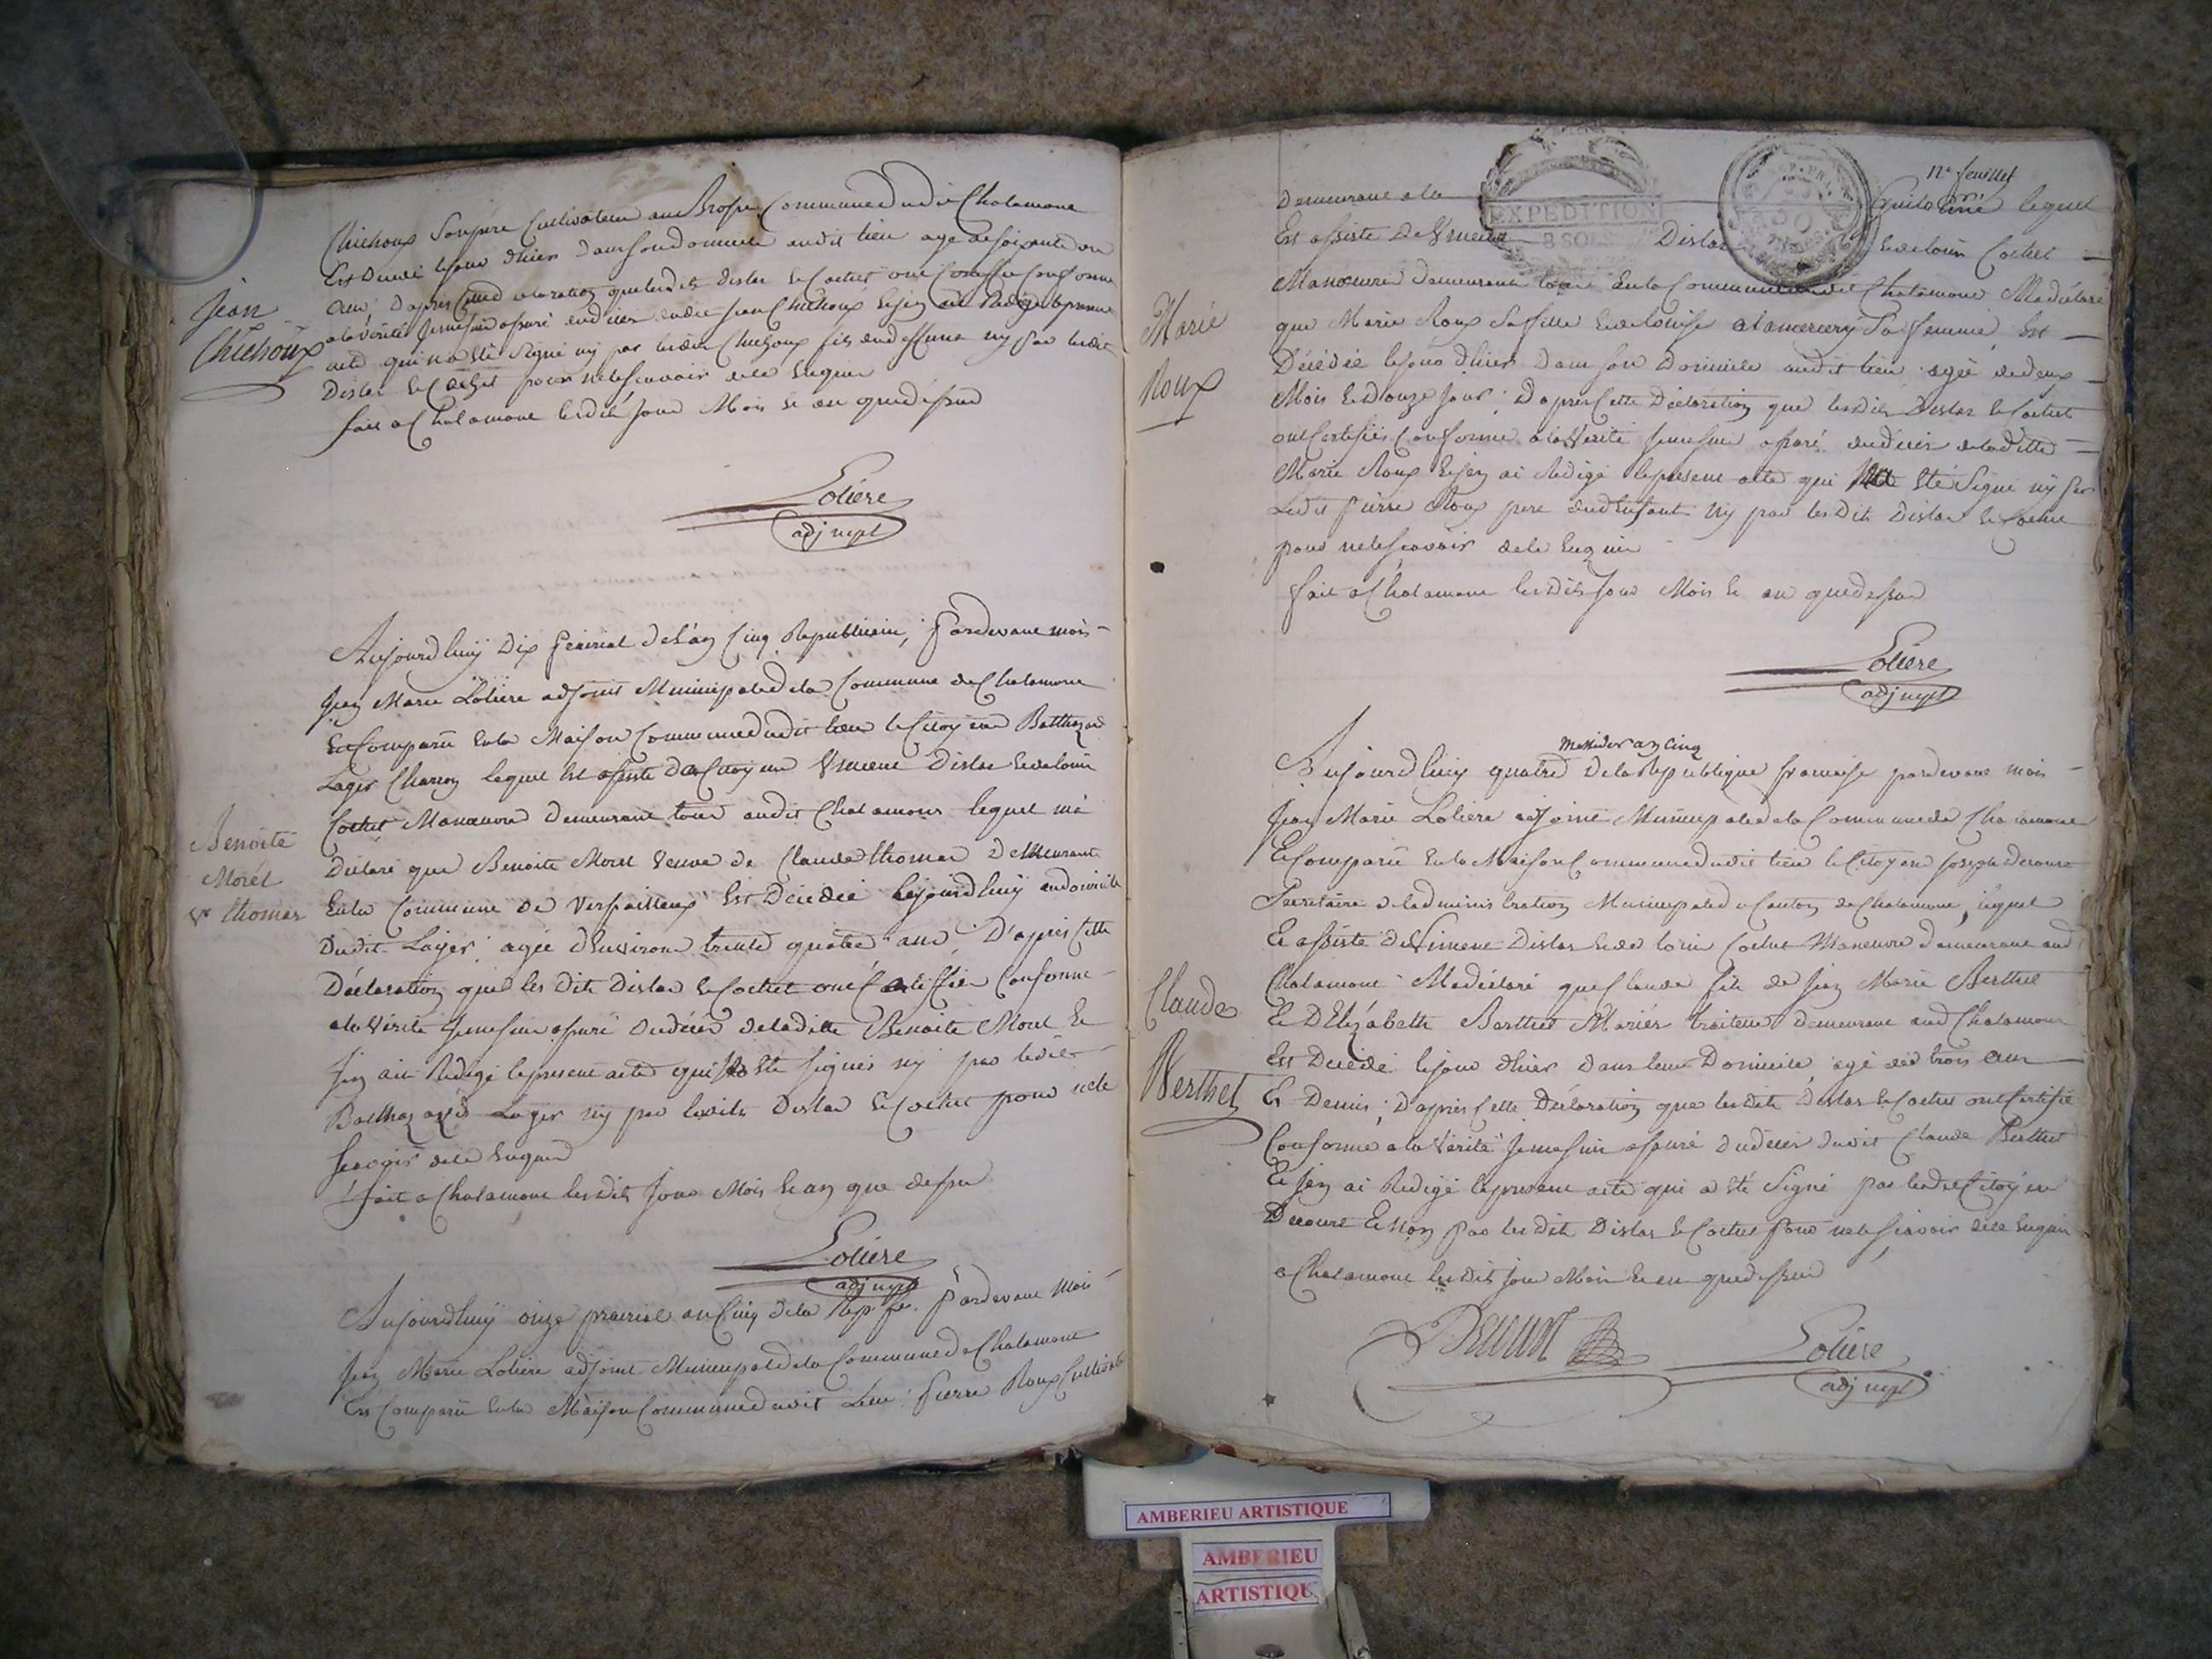 Jean
Chichoux
Chichoux Son pere Cultivateur au Commune dudit Chalamont
Est Decedé le jour d'hier dans son domicile audit lieu agé de soixante
ans; D'après que lesdits Dislas et Cochet ont Conforme
a la Vérité je me suis assuré du décès dudit Jean Chichoux et j'en ai Redigé le present
acte qui n'a Eté Signé ny par ledit Chichoux fils du deffunt ny par lesdits
Dislas et Cochet pour ne le scavoir de le Enquis
fait a Chalamont lesdits Jour Mois et an que dessus
Loliere
adj mpl
Benoite
Morel
Ve thomas
Aujourd'huy Dix floreal de L'an Cinq Republicain, Pardevant moi
Jean Marie Loliere adjoint Municipal de la Commune de Chalamont
Est Comparu En la Maison Commune dudit lieu le Citoyen Balthazard
Lager Charron lequel Est assisté de Citoyen Vincent Dislas et de louis
Cochet Manœuvre demeurant tous audit Chalamont lequel m'a
Déclaré que Benoite Morel Veuve de Claude thomas Demeurant
En la Commune de Versailleux Est Décédée aujourd'huy au domicile
Dudit Lager, agée d'Environ trente quatre ans, D'après Cette
Déclaration que les Dits Dislas et Cochet ont Certiffiée Conforme
a la Vérité je me suis assuré du décès de ladite Benoite Morel et
j'en ai Redigé le present acte qui n'a Eté Signé ny par ledit
Balthazard Lager ny par lesdits Dislas et Cochet pour ne le
scavoir de le Enquis
fait a Chalamont lesdits Jour Mois et an que dessus
Loliere
adj mpl
Aujourd'huy onze prairial an Cinq de la Rep. fse. Pardevant Moi
Jean Marie Loliere adjoint Municipal de la Commune de Chalamont
Est Comparu En la Maison Commune dudit Lieu Pierre Roux Cultivateur
12e feuillet
EXPEDITION
8 SOLS
REP. FRA.
Marie
Roux
Demeurant a la lequel
Est assisté De Vincent Dislas et de louis Cochet
Manœuvre Demeurant tous En la Commune de Chalamont M'a déclaré
que Marie Roux Sa fille Et de louise Sa femme, Est
Décédée le jour d'hier Dans son Domicile audit lieu agée de deux
Mois et Douze Jours; D'apres Cette Déclaration que lesdits Dislas et Cochet
ont Certifiée Conforme a la Vérité je me suis assuré du décès de laditte
Marie Roux et j'en ai Redigé le present acte qui Eté Signé ny par
Ledit Pierre Roux pere de l'Enfant ny par lesdits Dislas et Cochet
pour ne le scavoir de le Enquis
fait a Chalamont lesdits Jour Mois et an que dessus
Loliere
adj mpl
Claude
Berthet
Messidor an cinq
Aujourd'huy quatre De la Republique francaise pardevant moi
Jean Marie Loliere adjoint Municipal de la Commune de Chalamont
Est Comparu En la Maison Commune dudit lieu le Citoyen Joseph
Secretaire de l'administration Municipale du Canton de Chalamont, lequel
Est assisté de Vincent Dislas et de louis Cochet Manœuvre demeurant aud
Chalamont M'a déclaré que Claude fils de Jean Marie Berthet
Et D'Elizabeth Berthet Mariés traiteur demeurant aud Chalamont
Est Décédé le jour d'hier Dans leur Domicile, agé de trois ans
Et Demis; D'après Cette Déclaration que lesdits Dislas et Cochet ont Certifié
Conforme a la Vérité je me suis assuré du décès dudit Claude Berthet
Et j'en ai Redigé le present acte qui a Eté Signé par ledit Citoyen
Et Non par lesdits Dislas et Cochet pour ne le scavoir de le Enquis
a Chalamont lesdits Jour Mois et an que dessus
Loliere
adj mpl
AMBERIEU ARTISTIQUE
AMBERIEU
ARTISTIQU